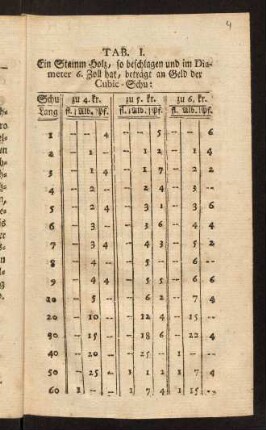 4
TAB. I.
Ein Stamm-Holz, so beschlagen und im Dia-
meter 6. Zoll hat, beträgt an Geld der
Cubic-Schu:
Schu zu 4. kr. zu 5. kr. zu 6. kr.
Lang fl. Alb. Pf. fl. Alb. Pf. fl. Alb. Pf.
1 -- -- 4 -- -- 5 -- -- 6
2 -- 1 -- -- 1 2 -- 1 4
3 -- 1 4 -- 1 7 -- 2 2
4 -- 2 -- -- 2 4 -- 3 --
5 -- 2 4 -- 3 1 -- 3 6
6 -- 3 -- -- 3 6 -- 4 4
7 -- 3 4 -- 4 3 -- 5 2
8 -- 4 -- -- 5 -- -- 6 --
9 -- 4 4 -- 5 5 -- 6 6
10 -- 5 -- -- 6 2 -- 7 4
20 -- 10 -- -- 12 4 -- 15 --
30 -- 15 -- -- 18 6 -- 22 4
40 -- 20 -- -- 25 -- 1 -- --
50 -- 25 -- 1 1 2 1 7 4
60 1 -- -- 1 7 4 1 15 --